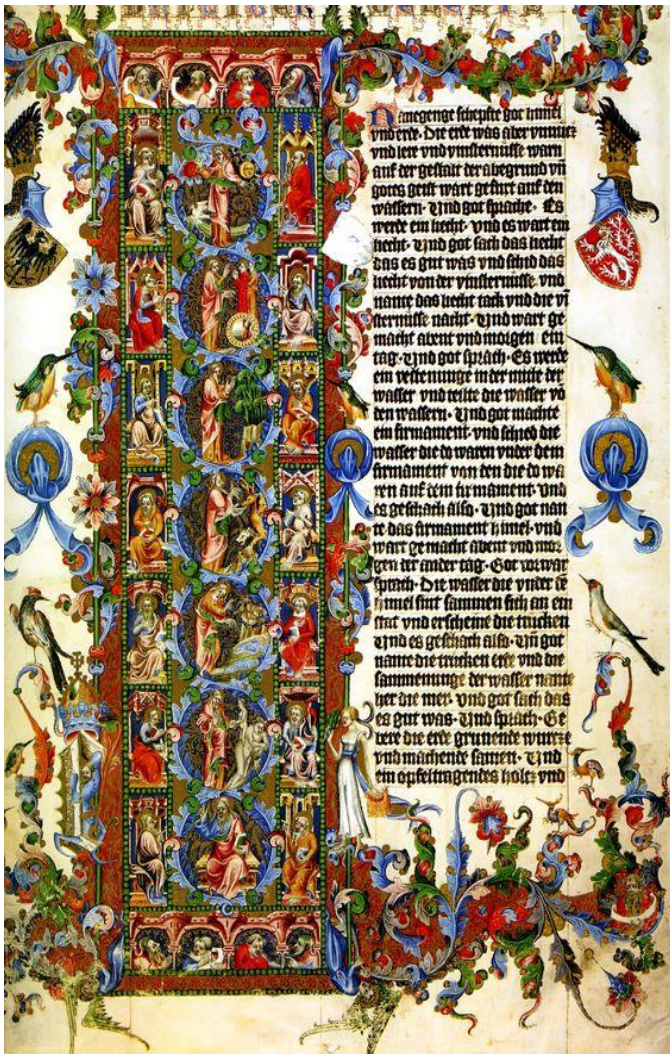 Namegenge schepfte got himel
vnd erde. Die erde was aber vnnucz
vnd lere vnd vinsternisse warn
auf der gestalt der abegrund vn
gotes geist wart gefurt auf den
wassern. Vnd got sprache. Es
werde ein liecht. vnd es wart ein
liecht. Vnd got sach das liecht
das es gut was vnd schid das
liecht von der vinsternisse. vnd
nante das liecht tack vnd die vi
sternisse nacht. Vnd wart ge
macht abent vnd morgen ein
tag. Vnd got sprach. Es werde
ein vestenunge in der mitte der
wasser vnd teilte die wasser vo
den wassern. Vnd got machte
ein firmament. vnd schied die
wasser die do waren vnder dem
firmament von den die do wa
ren auf dem firmament. Vnd
es geschach also. Vnd got nan
te das firmament himel. vnd
wart gemacht abent vnd mor
gen der ander tag. Got vorwar
sprach. Die wasser die vnder de
himel sint sammen sich an ein
stat vnd erscheine die trucken
Vnd es geschach also. Vn got
nante die trucken erde vnd die
sammenunge der wasser nante
her die mer. vnd got sach das
es gut was. Vnd sprach. Ge
bere die erde grunende wurcze
vnd machende samen. Vnd
ein opfeltragendes holcz vnd